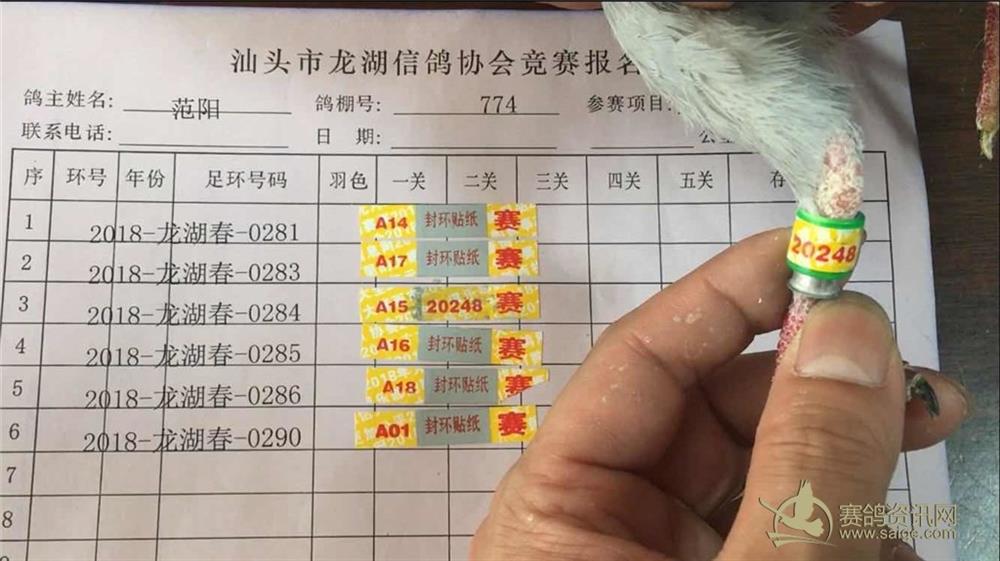 汕头市龙湖信鸽协会竞赛报名
鸽主姓名: 范阳 鸽棚号: 774 参赛项目:
联系电话: 日 期:
序 环号 年份 足环号码 羽色 一关 二关 三关 四关 五关 存
1 2018-龙湖春-0281 A14 封环贴纸 赛
2 2018-龙湖春-0283 A17 封环贴纸 赛
3 2018-龙湖春-0284 A15 20248 赛
4 2018-龙湖春-0285 A16 封环贴纸 赛
5 2018-龙湖春-0286 A18 封环贴纸 赛
6 2018-龙湖春-0290 A01 封环贴纸 赛
7
8
20248
赛鸽资讯网
www.saige.com